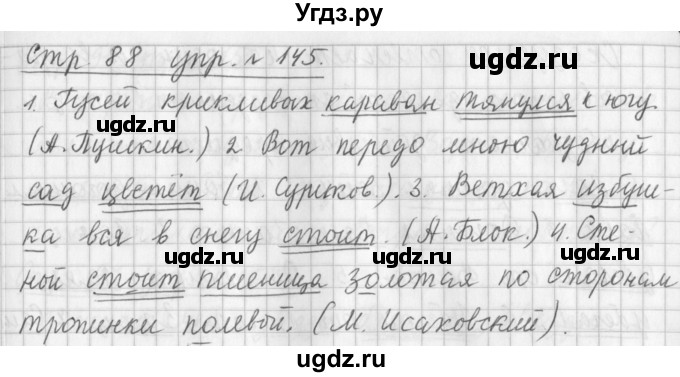 Угдз.ру
Стр. 88 упр. № 145.
1. Гусей крикливых караван тянулся к югу.
(А. Пушкин.) 2. Вот передо мною чудный
сад цветёт (И. Суриков.). 3. Ветхая избуш-
ка вся в снегу стоит. (А. Блок.) 4. Сте-
ной стоит пшеница золотая по сторонам
тропинки полевой. (М. Исаковский).
uгдz.ru
uгдz.ru
uгдz.ru
uгдz.ru
uгдz.ru
uгдz.ru
uгдz.ru